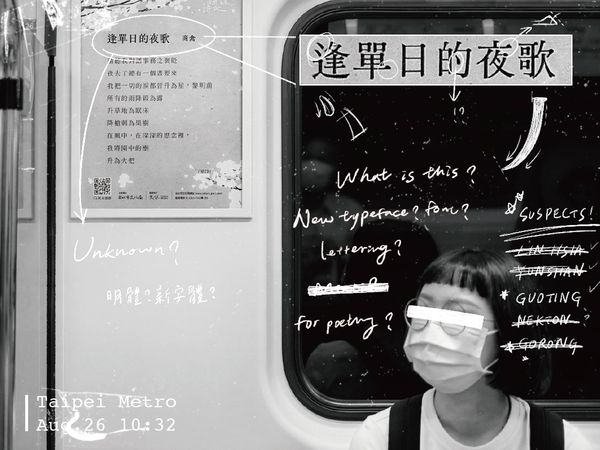 逢單日的夜歌 商禽
我把一切的淚都晉升為星，黎明前
所有的雨降級為露
升草地為眠床
降槍刺為果樹
在風中，在深深的思念裡，
我將園中的樹
升為火把
逢單日的夜歌
!?
What is this?
New typeface? font?
lettering?
for poetry?
Unknown?
明體?新字體?
SUSPECTS!
LIN HSIA
YUNSHAN
GUOTING
NEKTON ?
GORONG
Taipei Metro
Aug.26 10:32